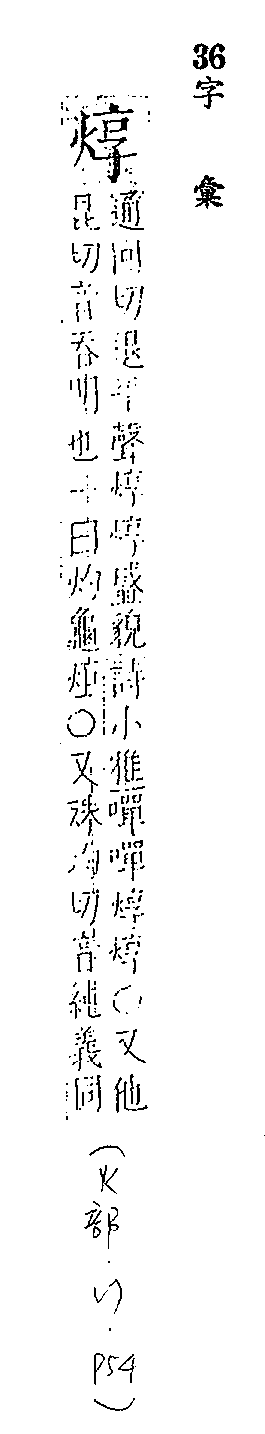 36字彙
焞
通回切退平聲焞焞盛貌詩小雅嘽嘽焞焞○又他
昆切音吞明也一曰灼龜炬○又殊勻切音純義同
(火部.り.P54)